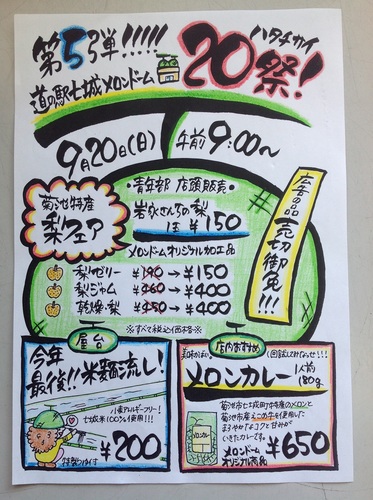 第5弾!!!!!
ハタチカイ
20祭!
道の駅七城メロンドーム
9月20日(日)
午前9:00〜
・青年部 店頭販売・
岩永さんちの梨
1玉 ¥150
菊池特産
梨フェア
広告の品
売切御免!!!
メロンドームオリジナル加工品
梨ゼリー ¥190→¥150
梨ジャム ¥460→¥400
乾燥・梨 ¥450→¥400
※すべて税込価格※
屋台
今年
最後!!米麺流し!
小麦アレルギーフリー!
七城米100%使用!!!
¥200
店内おすすめ
美味かばい
1回試してみなっせ!!!
メロンカレー
1人前
180g
菊池市七城町特産のメロンと
菊池市産えこめ牛を使用した
まろやかなコクと甘みが
いきたカレーです。
¥650
メロンドーム
オリジナル商品